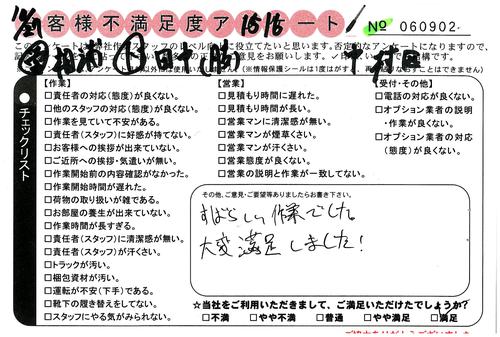 お客様不満足度アンケート
№ 060902
【作業】
□責任者の対応(態度)が良くない。
□他のスタッフの対応(態度)が良くない。
□作業を見ていて不安がある。
□責任者(スタッフ)に好感が持てない。
□お客様への挨拶が出来ていない。
□ご近所への挨拶・気遣いが無い。
□作業開始前の内容確認がなかった。
□作業開始時間が遅れた。
□荷物の取り扱いが雑である。
□お部屋の養生が出来ていない。
□作業時間が長すぎる。
□責任者(スタッフ)に清潔感が無い。
□責任者(スタッフ)が汗くさい。
□トラックが汚い。
□梱包資材が汚い。
□運転が不安(下手)である。
□靴下の履き替えをしてない。
□スタッフにやる気がみられない。
【営業】
□見積もり時間に遅れた。
□見積もり時間が長い。
□営業マンに清潔感が無い。
□営業マンが煙草くさい。
□営業マンが汗くさい。
□営業態度が良くない。
□営業の説明と作業が一致してない。
【受付・その他】
□電話の対応が良くない。
□オプション業者の説明
・作業が良くない。
□オプション業者の対応
(態度)が良くない。
●チェックリスト
その他、ご意見・ご要望等ありましたらお書き下さい。
すばらしい作業でした。
大変満足しました!
☆当社をご利用いただきまして、ご満足いただけたでしょうか?
□不満 □やや不満 □普通 □やや満足 □満足